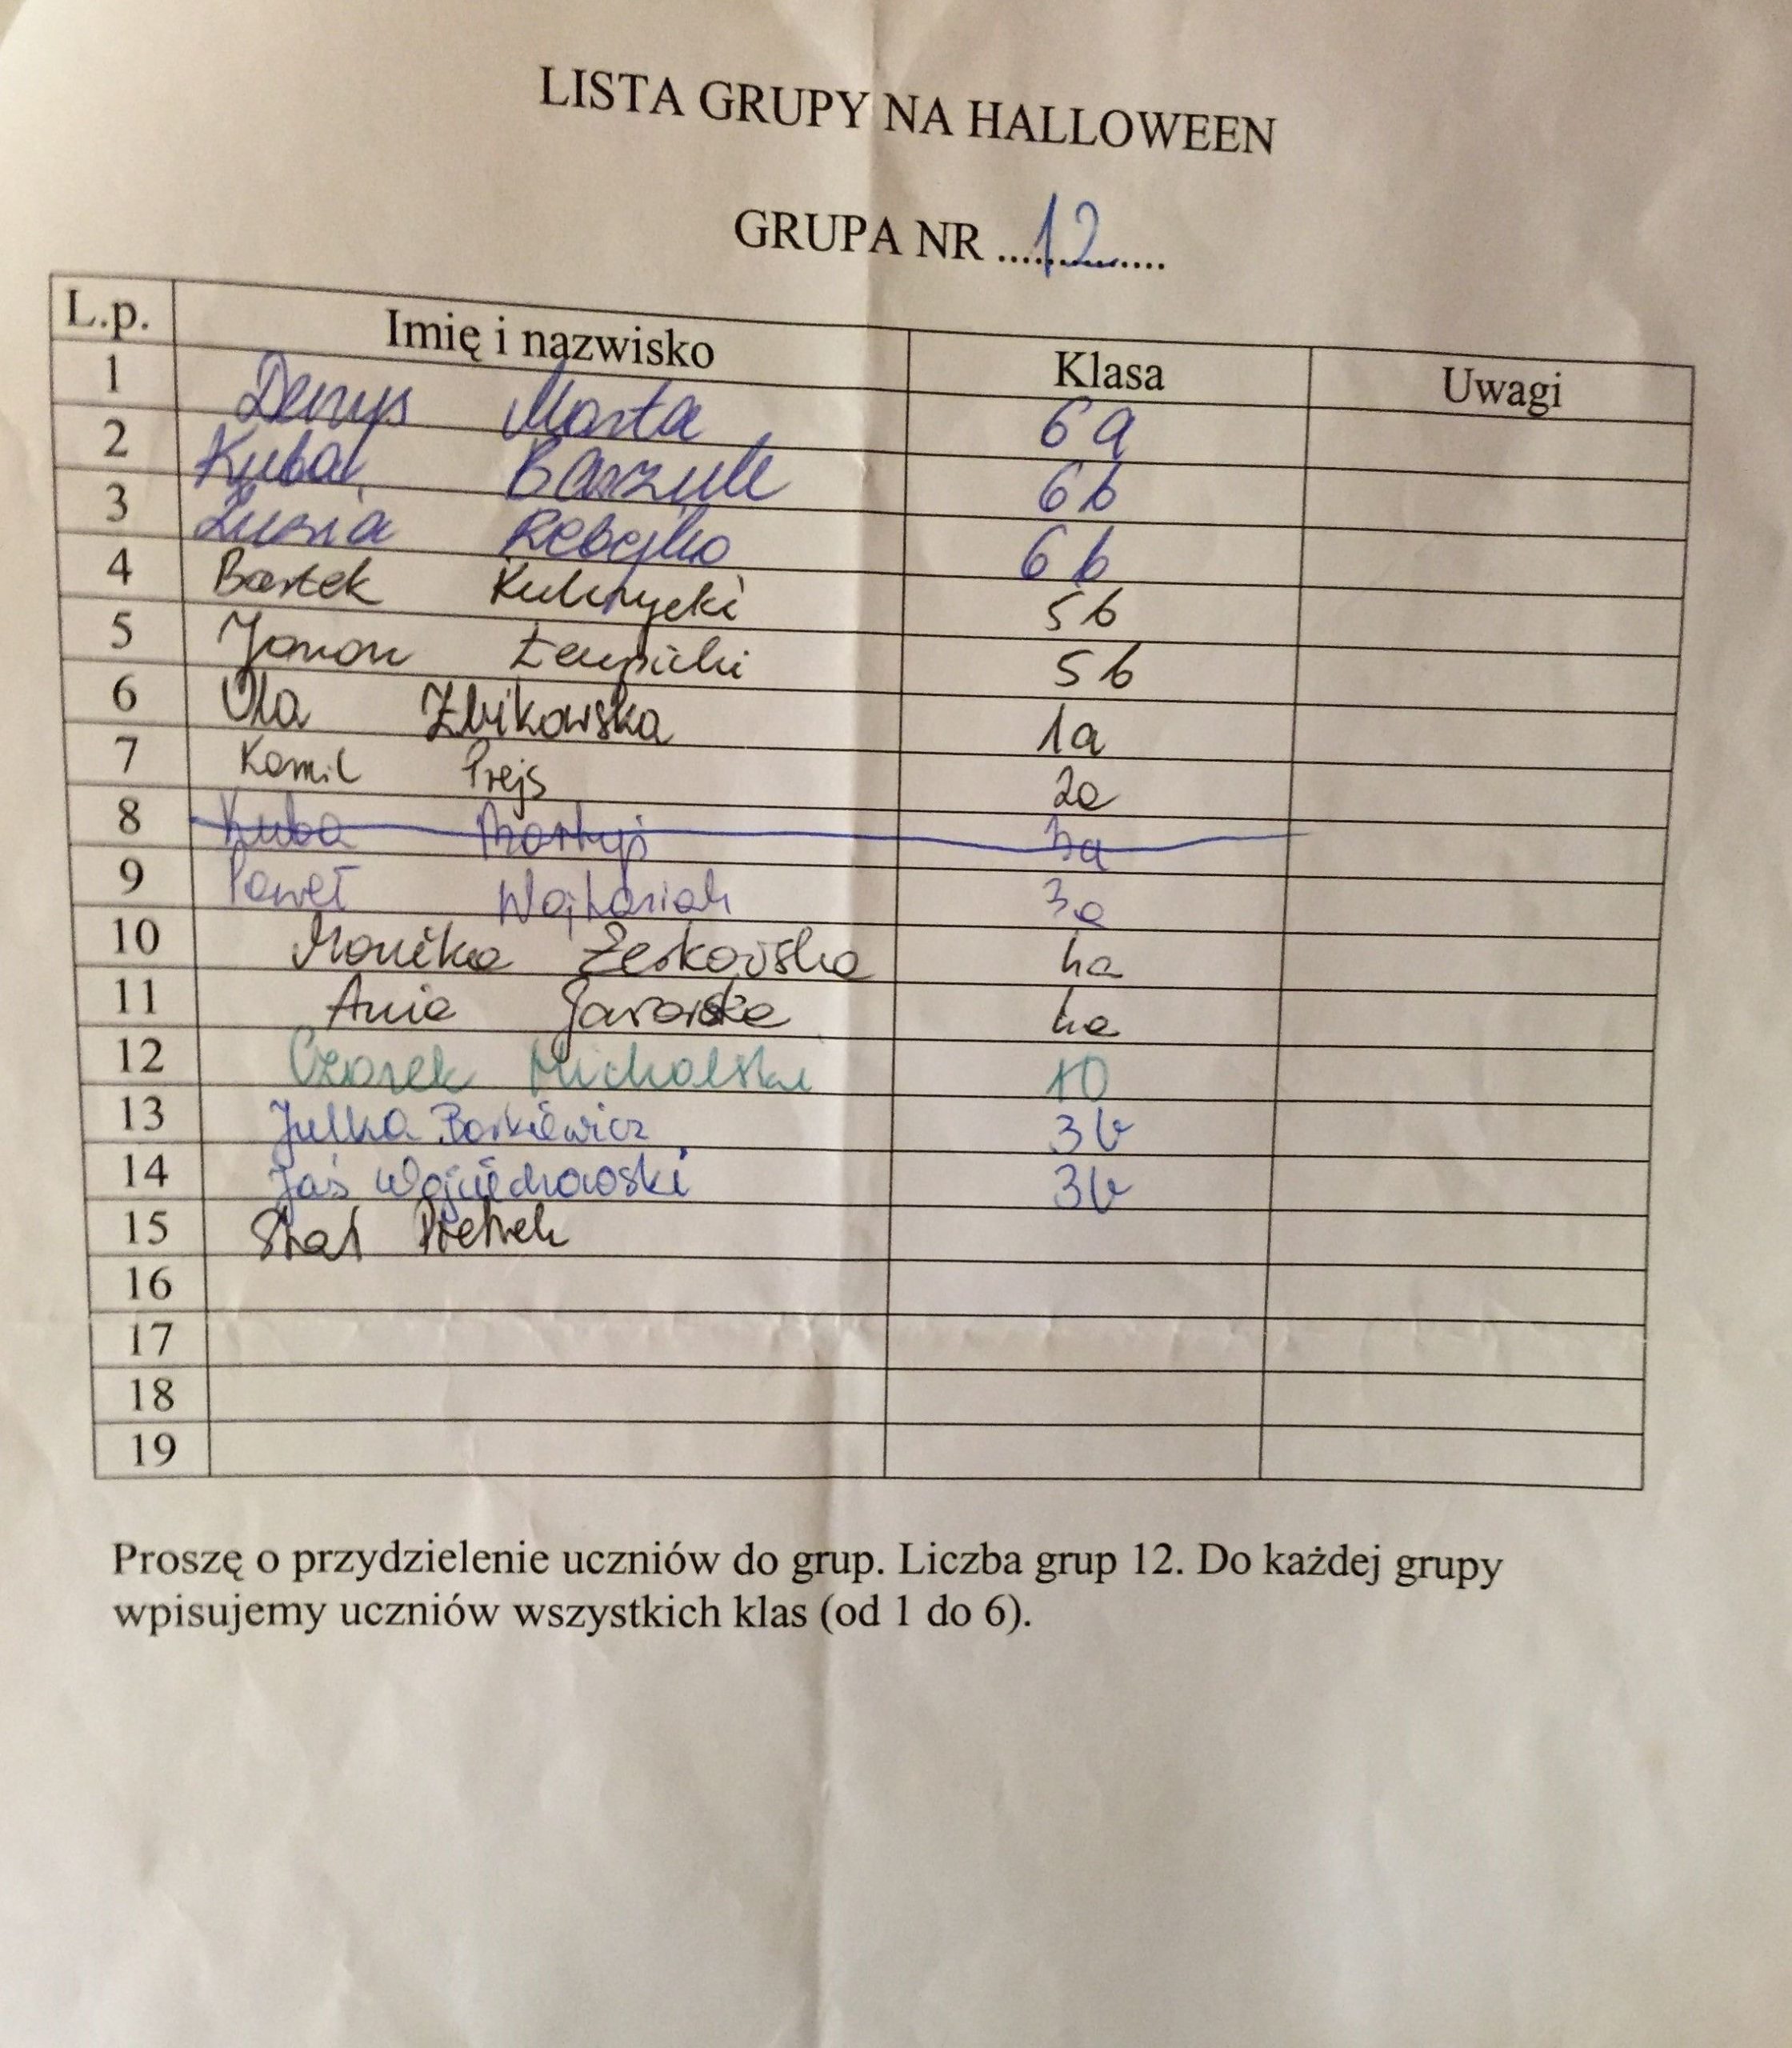 LISTA GRUPY NA HALLOWEEN
GRUPA NR ....12....
L.p. Imię i nazwisko Klasa Uwagi
1 Denys Marta 6a
2 Kuba 6b
3 Zuzia 6b
4 Bartek 5b
5 5b
6 Ola Żbikowska 1a
7 Kamil Prejs 2a
8 Kuba
9 Paweł 3a
10 Monika Żerkowska 4a
11 Ania 4a
12 Czarek Michalski
13 Julka Borkiewicz 3b
14 Jaś Wojciechowski 3b
15 Pietrek
16
17
18
19
Proszę o przydzielenie uczniów do grup. Liczba grup 12. Do każdej grupy
wpisujemy uczniów wszystkich klas (od 1 do 6).